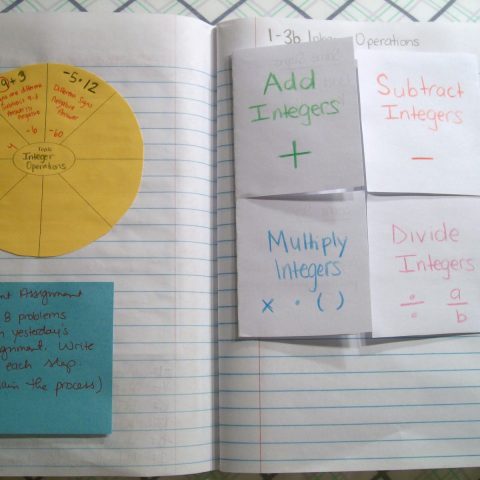 -9+3
-5·12
Signs are different
Subtract 9-3
Answer is
negative
-6
Different Signs
Negative
Answer
-60
Integer
Operations
Assignment
8 problems
yesterday's
Write
each step.
the process)
1-3b Integer Operations
Add
Integers
+
Subtract
Integers
−
Multiply
Integers
x · ( )
Divide
Integers
÷ a/b